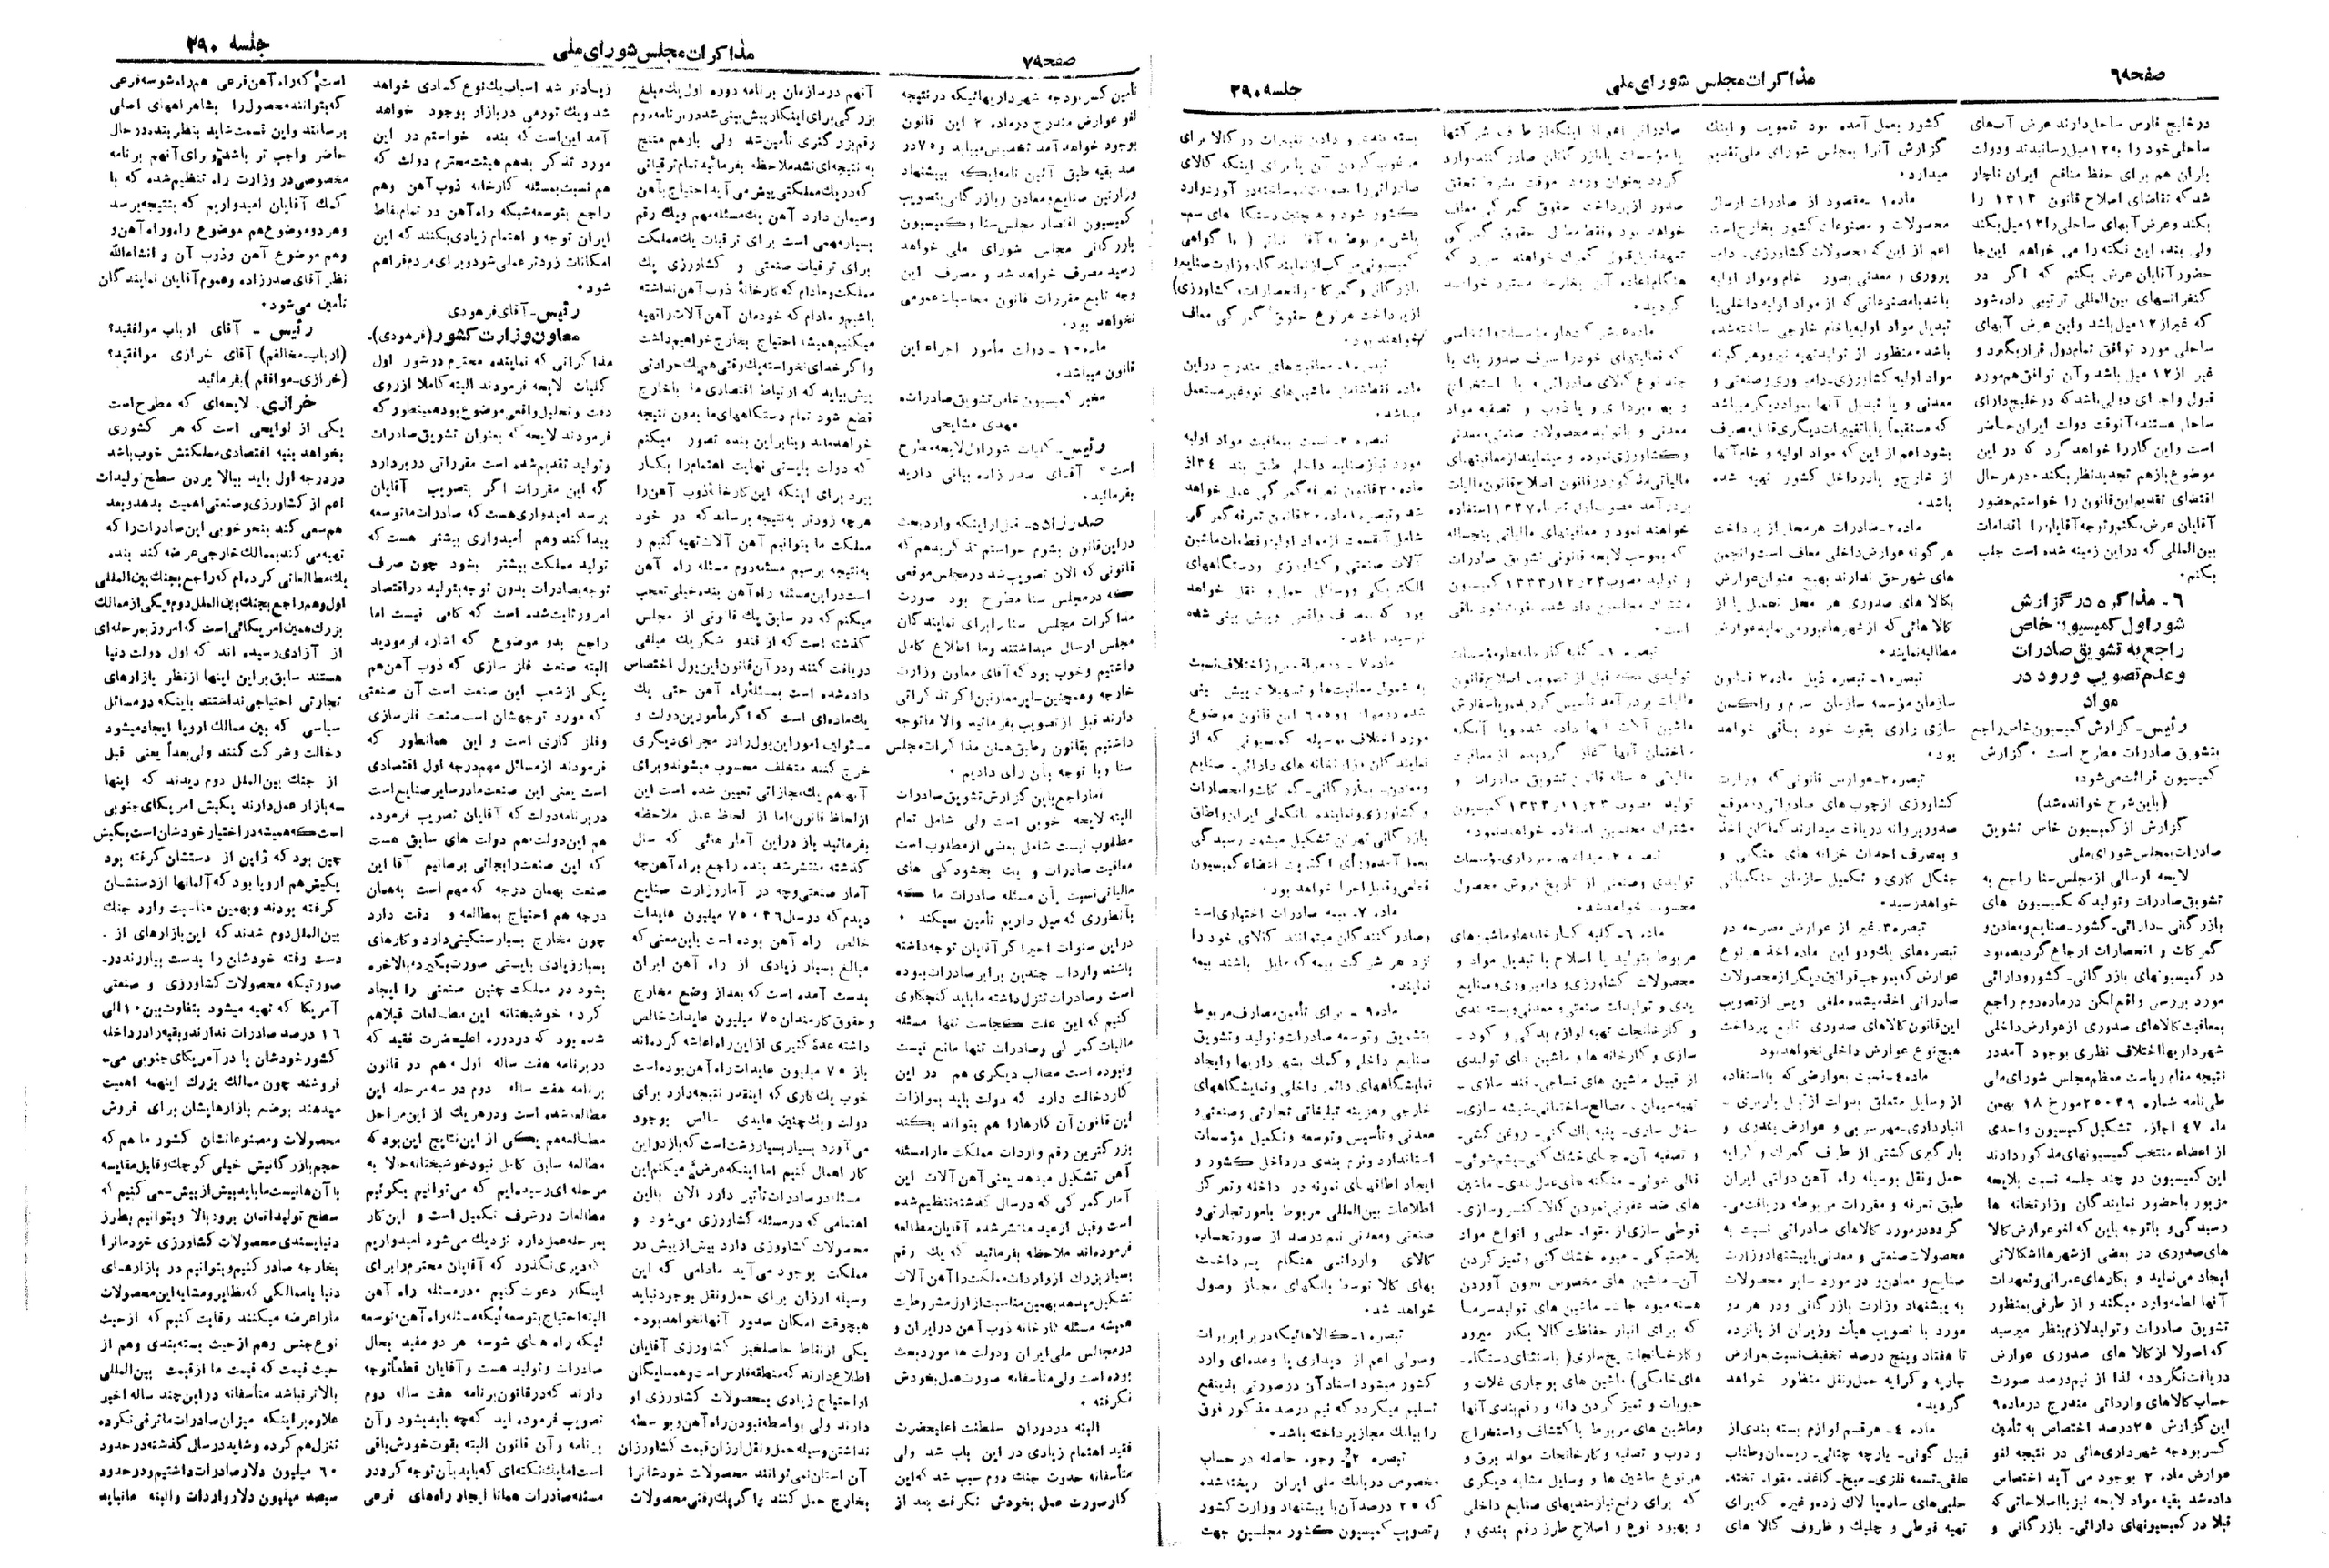 صفحه۶
مذاکرات مجلس شورای ملی
جلسه ۲۹۰
در خلیج فارس ساحل دارند عرض آب‌های
ساحلی خود را به ۱۲ میل رسانیدند و دولت
ایران هم برای حفظ منافع ایران ناچار
شد که تقاضای اصلاح قانون ۱۳۱۳ را
بکند و عرض آبهای ساحلی را ۱۲ میل بکند
ولی بنده این نکته را می خواهم این جا
حضور آقایان عرض بکنم که اگر در
کنفرانسهای بین‌المللی ترتیبی داده شود
که غیر از ۱۲ میل باشد و این عرض آبهای
ساحلی مورد توافق تمام دول قرار بگیرد و
غیر از ۱۲ میل باشد و آن توافق هم مورد
قبول واجرای دولی باشد که در خلیج دارای
ساحل هستند، آنوقت دولت ایران حاضر
است و این کار را خواهد کرد که در این
موضوع باز هم تجدید نظر بکند، در هر حال
اقتضای تقدیم این قانون را خواستم حضور
آقایان عرض بکنم و توجه آقایان را اقدامات
بین‌المللی که در این زمینه شده است جلب
بکنم.
۶ ـ مذاکره در گزارش
شور اول کمیسیون خاص
راجع به تشویق صادرات
و عدم تصویب ورود در
مواد
رئیس ـ گزارش کمیسیون خاص راجع
بتشویق صادرات مطرح است. گزارش
کمیسیون قرائت می‌شود:
(باین شرح خوانده شد)
گزارش از کمیسیون خاص تشویق
صادرات بمجلس شورای ملی
لایحه ارسالی از مجلس سنا راجع به
تشویق صادرات و تولید که بکمیسیون های
بازرگانی ـ دارائی ـ کشور ـ صنایع و معادن و
گمرکات و انحصارات ارجاع گردیده بود
در کمیسیونهای بازرگانی ـ کشور و دارائی
مورد بررسی واقع لکن در ماده دوم راجع
بمعافیت کالاهای صدوری از عوارض داخلی
شهرداریها اختلاف نظری بوجود آمد در
نتیجه مقام ریاست معظم مجلس شورای ملی
طی نامه شماره ۲۵۰۴۹ مورخ ۱۸ بهمن
ماه ۴۷ اجازه تشکیل کمیسیون واحدی
از اعضاء منتخب کمیسیونهای مذکور دادند
این کمیسیون در چند جلسه نسبت بلایحه
مزبور با حضور نمایندگان وزارتخانه ها
رسیدگی و با توجه باین که لغو عوارض کالا
های صدوری در بعضی از شهرها اشکالاتی
ایجاد می نماید و بکارهای عمرانی و تعهدات
آنها لطمه وارد میکند و از طرفی بمنظور
تشویق صادرات و تولید لازم بنظر میرسید
که اصولا از کالا های صدوری عوارض
دریافت نگردد، لذا از نیم درصد صورت
حساب کالاهای وارداتی مندرج در ماده ۹
این گزارش ۲۵ درصد اختصاص به تأمین
کسر بودجه شهرداری هائی در نتیجه لغو
عوارض ماده ۲ بوجود می آید اختصاص
داده شد بقیه مواد لایحه نیز با اصلاحاتی که
قبلا در کمیسیونهای دارائی ـ بازرگانی و
کشور بعمل آمده بود تصویب و اینک
گزارش آنرا بمجلس شورای ملی تقدیم
میدارد.
ماده ۱ ـ مقصود از صادرات ارسال
محصولات و مصنوعات کشور بخارج است
اعم از این که محصولات کشاورزی ـ دام
پروری و معدنی بصورت خام و مواد اولیه
باشد یا مصنوعاتی که از مواد اولیه داخلی یا
تبدیل مواد اولیه یا خام خارجی ساخته شده
باشد، منظور از تولید تهیه نیرو و هر گونه
مواد اولیه کشاورزی ـ دامپروری و صنعتی و
معدنی و یا تبدیل آنها بمواد دیگر میباشد
که مستقیماً یا با تغییرات دیگری قابل مصرف
بشود اعم از این که مواد اولیه و خام آنها
از خارج و یا در داخل کشور تهیه شده
باشد.
ماده ۲ ـ صادرات هر محل از پرداخت
هر گونه عوارض داخلی معاف است و انجمن
های شهر حق ندارند بهیچ عنوان عوارض
بکالا های صدوری هر محل تحمیل یا از
کالا هائی که از شهرها عبور می نماید عوارض
مطالبه نمایند.
تبصره ۱ ـ تبصره ذیل ماده ۲ قانون
سازمان مؤسسه سازمان سرم و واکسن
سازی رازی بقوت خود باقی خواهد
بود.
تبصره ۲ ـ عوارض قانونی که وزارت
کشاورزی از چوب های صادراتی بموقع
صدور پروانه دریافت میدارند کماکان اخذ
و بمصرف احداث خزانه های جنگلی و
جنگل کاری و تکمیل سازمان جنگلبانی
خواهد رسید.
تبصره ۳ ـ غیر از عوارض مصرحه در
تبصره های یک و دو این ماده اخذ هر نوع
عوارض که بموجب قوانین دیگر از محصولات
صادراتی اخذ میشده ملغی و پس از تصویب
این قانون کالاهای صدوری تابع پرداخت
هیچ نوع عوارض داخلی نخواهد بود.
ماده ۴ ـ نسبت بعوارضی که با استفاده
از وسایل متعلق بدولت از قبیل باربری ـ
انبارداری ـ مهر سربی و عوارض بندری و
بارگیری کشتی از طرف گمرک و کرایه
حمل و نقل بوسیله راه آهن دولتی ایران
طبق تعرفه و مقررات مربوطه دریافت می
گردد در مورد کالاهای صادراتی نسبت به
محصولات صنعتی و معدنی با پیشنهاد وزارت
صنایع و معادن و در مورد سایر محصولات
به پیشنهاد وزارت بازرگانی و در هر دو
مورد با تصویب هیأت وزیران از پانزده
تا هفتاد و پنج درصد تخفیف نسبت بعوارض
جاریه و کرایه حمل و نقل منظور خواهد
گردید.
ماده ۴ ـ هر قسم لوازم بسته بندی از
قبیل گونی ـ پارچه چتائی ـ ریسمان و طناب
علفی ـ تسمه فلزی ـ میخ ـ کاغذ ـ مقوا ـ تخته ـ
حلبی های ساده یا لاک زده و غیره که برای
تهیه قوطی و چلیک و ظروف کالا های
صادراتی اعم از اینکه از طرف شرکتها
یا مؤسسات یا بازرگانان صادر کننده وارد
گردد بعنوان ورود موقت بشرط تحقق
صدور از پرداخت حقوق گمرکی معاف
خواهد بود و فقط معادل حقوق گمرکی
تعهد تضمین قبول گمرک خواهند سپرد که
هنگام اعاده آن بخارجه مسترد خواهد
گردید.
که فعالیتهای خود را صرف صدور یک یا
چند نوع کالای صادراتی و یا استخراج
و بهره برداری و یا ذوب و تصفیه مواد
معدنی و یا تولید محصولات صنعتی و معدنی
و کشاورزی نموده و مینمایند از معافیتهای
مالیاتی مذکور در قانون اصلاح قانون مالیات
بر درآمد مصوب اول تیرماه ۱۳۳۷ استفاده
خواهند نمود و معافیتهای مالیاتی پنجساله
که بموجب لایحه قانونی تشویق صادرات
و تولید مصوب ۲۳ر۱۲ر۱۳۳۳ کمیسیون
مشترک مجلسین داده شده بقوت خود باقی
است.
تبصره ۱ ـ کلیه کارخانه ها و مؤسسات
تولیدی که قبل از تصویب اصلاح قانون
مالیات بر درآمد تأسیس گردیده و یا سفارش
ماشین آلات آنها داده شده و یا آنکه
ساختمان آنها آغاز گردیده از معافیت
مالیاتی ۵ ساله قانون تشویق صادرات و
تولید مصوب ۲۳ر۱۱ر۱۳۳۳ کمیسیون
مشترک مجلسین استفاده خواهند نمود.
تبصره ۲ ـ مبداء بهره برداری مؤسسات
تولیدی و صنعتی از تاریخ فروش محصول
محسوب خواهد شد.
ماده ۶ ـ کلیه کارخانه ها و ماشین های
مربوط بتولید یا اصلاح یا تبدیل مواد و
محصولات کشاورزی و دامپروری و صنایع
یدی و تولیدات صنعتی و معدنی و بسته بندی
و کارخانجات تهیه لوازم یدکی و کود ـ
سازی و کارخانه ها و ماشین های تولیدی
از قبیل ماشین های نساجی ـ قند سازی ـ
تهیه سیمان ـ مصالح ساختمانی ـ شیشه سازی ـ
سفال سازی ـ پنبه پاک کنی ـ روغن کشی ـ
و تصفیه آن ـ چای خشک کنی ـ پشم شوئی ـ
قالی شوئی ـ منگنه های عدل بندی ـ ماشین
های ضد عفونی نمودن کالا ـ کنسروسازی ـ
قوطی سازی از مقوا ـ حلبی و انواع مواد
پلاستیکی ـ میوه خشک کنی و تمیز کردن
آن ـ ماشین های مخصوص بیرون آوردن
هسته میوه جات ـ ماشین های تولید سرما
که برای انبار حفاظت کالا بکار میرود
و کارخانجات یخ سازی (باستثنای دستگاه
های خانگی) ماشین های بوجاری غلات و
حبوبات و تمیز کردن دانه و رقم بندی آنها
و ماشین های مربوط با کتشاف و استخراج
و ذوب و تصفیه و کارخانجات مولد برق و
هر نوع ماشین ها و وسایل مشابه دیگری
که برای رفع نیازمندیهای صنایع داخلی
و بهبود نوع و اصلاح طرز رقم بندی و
بسته بندی و دادن تغییرات در کالا برای
مرغوب کردن آن یا برای اینکه کالای
صادراتی را بصورت نیمساخته در آورد وارد
کشور شود و همچنین دستگاه های سم
پاشی مربوط به آفات نباتی (با گواهی
کمیسیون مرکب از نمایندگان وزارت صنایع و
بازرگانی و گمرکات و انحصارات و کشاورزی)
از پرداخت هر نوع حقوق گمرکی معاف
خواهند بود.
تبصره ۱ ـ معافیت های مندرج در این
ماده فقط شامل ماشین های نو و غیر مستعمل
میباشد.
تبصره ۲ ـ نسبت بمعافیت مواد اولیه
مورد نیاز صنایع داخلی طبق بند ۳۴ از
ماده ۲۰ قانون تعرفه گمرکی عمل خواهد
شد و تبصره ۱ ماده ۲۰ قانون تعرفه گمرکی
شامل آنقسمت از مواد اولیه و قطعات ماشین
آلات صنعتی و کشاورزی و دستگاههای
الکتریکی و وسائل حمل و نقل خواهد
بود که بمصرف واقعی و پیش بینی شده
نرسیده باشد.
ماده ۷ ـ در موارد بروز اختلاف نسبت
به شمول معافیت ها و تسهیلات پیش بینی
شده در مواد ۴ و ۵ و ۶ این قانون موضوع
مورد اختلاف بوسیله کمیسیونی که از
نمایندگان وزارتخانه های دارائی ـ صنایع
ومعادن ـ بازرگانی ـ گمرکات و انحصارات
و کشاورزی و نماینده بانک ملی ایران و اطاق
بازرگانی تهران تشکیل میشود رسیدگی
بعمل آمده و رأی اکثریت اعضاء کمیسیون
قطعی و قابل اجرا خواهد بود.
ماده ۷ ـ بیمه صادرات اختیاری است
و صادر کنندگان میتوانند کالای خود را
نزد هر شرکت بیمه که مایل باشند بیمه
نمایند.
ماده ۹ ـ برای تأمین مصارف مربوط
بتشویق و توسعه صادرات و تولید و تشویق
صنایع داخلی و کمک بشهرداریها و ایجاد
نمایشگاههای دائم داخلی و نمایشگاههای
خارجی و هزینه تبلیغاتی تجارتی و صنعتی و
معدنی و تأسیس و توسعه و تکمیل مؤسسات
استاندارد و نرم بندی در داخل کشور و
ایجاد اطاقهای نمونه در داخله و تمرکز
اطلاعات بین‌المللی مربوط بامور تجارتی و
صنعتی و معدنی نیم درصد از صورتحساب
کالای وارداتی هنگام پرداخت
بهای کالا توسط بانکهای مجاز وصول
خواهد شد.
تبصره ۱ ـ کالاهائیکه در برابر برات
وصولی اعم از دیداری یا وعده‌ای وارد
کشور میشود اسناد آن در صورتی بذینفع
تسلیم میگردد که نیم درصد مذکور فوق
را ببانک مجاز پرداخته باشد.
تبصره ۲ ـ وجوه حاصله در حساب
مخصوص در بانک ملی ایران ریخته شده
که ۲۵ درصد آن با پیشنهاد وزارت کشور
و تصویب کمیسیون کشور مجلسین جهت
صفحه ۷
مذاکرات مجلس شورای ملی
جلسه ۲۹۰
تأمین کسر بودجه شهرداریهائیکه در نتیجه
لغو عوارض مندرج در ماده ۲ این قانون
بوجود خواهد آمد تخصیص مییابد و ۷۵ در
صد بقیه طبق آئین نامه‌ایکه بپیشنهاد
وزارتین صنایع و معادن و بازرگانی بتصویب
کمیسیون اقتصاد مجلس سنا و کمیسیون
بازرگانی مجلس شورای ملی خواهد
رسید مصرف خواهد شد و مصرف این
وجه تابع مقررات قانون محاسبات عمومی
نخواهد بود.
ماده ۱۰ ـ دولت مأمور اجراء این
قانون میباشد.
مخبر کمیسیون خاص تشویق صادرات
مهدی مشایخی
رئیس ـ کلیات شور اول لایحه مطرح
است. آقای صدرزاده بیانی دارید
بفرمائید.
صدرزاده ـ قبل از اینکه وارد بحث
در این قانون بشوم خواستم تذکر بدهم که
قانونی که الان تصویب شد در مجلس موقعی
که در مجلس سنا مطرح بود صورت
مذاکرات مجلس سنا را برای نمایندگان
مجلس ارسال میداشتند و ما اطلاع کامل
داشتیم و خوب بود که آقای معاون وزارت
خارجه و همچنین سایر معاونین اگر تذکراتی
دارند قبل از تصویب بفرمائید والا ما توجه
داشتیم بقانون و طبق همان مذاکرات مجلس
سنا و با توجه بآن رأی دادیم.
اما راجع باین گزارش تشویق صادرات
البته لایحه خوبی است ولی شامل تمام
مطلوب نیست شامل بعضی از مطلوب است
معافیت صادرات و یک بخشودگی های
مالیاتی نسبت بآن مسئله صادرات ما که
بآنطوری که میل داریم تأمین نمیکند.
در این سنوات اخیر اگر آقایان توجه داشته
باشند واردات چندین برابر صادرات بوده
است و صادرات تنزل داشته ما باید کنجکاوی
کنیم که این علت کجاست تنها مسئله
مالیات گمرکی و صادرات تنها مانع نیست
و نبوده است مطالب دیگری هم در این
کار دخالت دارد که دولت باید بموازات
این قانون آن کارها را هم بتواند بکند
بزرگترین رقم واردات مملکت ما را مسئله
آهن تشکیل میدهد یعنی آهن آلات این
آمار گمرکی که در سال گذشته تنظیم شده
است و قبل از عید منتشر شده آقایان مطالعه
فرموده‌اند ملاحظه بفرمائید که یک رقم
بسیار بزرگ از واردات مملکت را آهن آلات
تشکیل میدهد بهمین مناسبت از اول مشروطیت
همیشه مسئله کارخانه ذوب آهن در ایران و
در مجالس ملی ایران و دولت ها مورد بحث
بوده است ولی متأسفانه صورت عمل بخودش
نگرفته.
البته در دوران سلطنت اعلیحضرت
فقید اهتمام زیادی در این باب شد ولی
متأسفانه حدوث جنگ دوم سبب شد که این
کار صورت عمل بخودش نگرفت بعد از
آنهم در سازمان برنامه دوره اول یک مبلغ
بزرگی برای اینکار پیش بینی شد در برنامه دوم
رقم بزرگتری تأمین شد ولی باز هم منتج
به نتیجه‌ای نشد ملاحظه بفرمائید تمام ترقیاتی
که در یک مملکتی پیش می آید احتیاج بآهن
و سیمان دارد آهن یک مسئله مهم و یک رقم
بسیار مهمی است برای ترقیات یک مملکت
برای ترقیات صنعتی و کشاورزی یک
مملکت و مادام که کارخانه ذوب آهن نداشته
باشیم و مادام که خودمان آهن آلات را تهیه
میکنیم همیشه احتیاج بخارج خواهیم داشت
و اگر خدای نخواسته یک وقتی هم یک حوادثی
پیش بیاید که ارتباط اقتصادی ما با خارج
قطع شود تمام دستگاههای ما بدون نتیجه
خواهد ماند و بنابراین بنده تصور میکنم
که دولت بایستی نهایت اهتمام را بکار
ببرد برای اینکه این کارخانه ذوب آهن را
هر چه زودتر به نتیجه برساند که در خود
مملکت ما بتوانیم آهن آلات تهیه کنیم و
به نتیجه برسیم مسئله دوم مسئله راه آهن
است در این مسئله راه آهن بنده خیلی تعجب
میکنم که در سابق یک قانونی از مجلس
گذشته است که از قند و شکر یک مبلغی
دریافت کنند و در آن قانون این پول اختصاص
داده شده است بمسئله راه آهن حتی یک
یک ماده‌ای است که اگر مأمورین دولت و
مسئولین امور این پول را در مجرای دیگری
خرج کنند متخلف محسوب میشوند و برای
آنها هم یک مجازاتی تعیین شده است این
از لحاظ قانون، اما از لحاظ عمل ملاحظه
بفرمائید باز در این آمار هائی که سال
گذشته منتشر شد بنده راجع براه آهن چه
آمار صنعتی و چه در آمار وزارت صنایع
دیدم که در سال ۳۶ ۷۵۰ میلیون عایدات
خالص راه آهن بوده است باین معنی که
مبالغ بسیار زیادی از راه آهن ایران
بدست آمده است که بعد از وضع مخارج
و حقوق کارمندان ۷۵ میلیون عایدات خالص
داشته عده کثیری از این راه اعاشه کرده‌اند
باز ۷۵ میلیون عایدات راه آهن بوده است
خوب یک کاری که اینقدر نتیجه دارد برای
دولت و یک چنین عایدی خالص بوجود
می آورد بسیار بسیار زشت است که باز در این
کار اهمال کنیم اما اینکه عرض میکنم این
مسئله در صادرات تأثیر دارد الان با این
اهتمامی که در مسئله کشاورزی می‌شود و
محصولات کشاورزی دارد بیش از پیش در
مملکت بوجود می آید مادامی که این
وسیله ارزان برای حمل و نقل بوجود نیاید
هیچوقت امکان صدور آنها نخواهد بود.
یکی از نقاط حاصلخیز کشاورزی آقایان
اطلاع دارند که منطقه فارس است و همسایگان
او احتیاج زیادی بمحصولات کشاورزی او
دارند ولی بواسطه نبودن راه آهن و بواسطه
نداشتن وسیله حمل و نقل ارزان قیمت کشاورزان
آن استان نمی توانند محصولات خودشان را
بخارج حمل کنند و اگر یک وقتی محصولات
زیادتر شد اسباب یک نوع کسادی خواهد
شد و یک تورمی در بازار بوجود خواهد
آمد این است که بنده خواستم در این
مورد تذکر بدهم هیئت محترم دولت که
هم نسبت بمسئله کارخانه ذوب آهن و هم
راجع بتوسعه شبکه راه آهن در تمام نقاط
ایران توجه و اهتمام زیادی بکنند که این
امکانات زودتر عملی شود و برای مردم فراهم
شود.
رئیس ـ آقای فرهودی
معاون وزارت کشور (فرهودی) ـ
مذاکراتی که نماینده محترم در شور اول
کلیات لایحه فرمودند البته کاملا از روی
دقت و تحلیل واقعی موضوع بود همینطور که
فرمودند لایحه که بعنوان تشویق صادرات
و تولید تقدیم شده است مقرراتی در بردارد
که این مقررات اگر بتصویب آقایان
برسد امیدواری هست که صادرات ما توسعه
پیدا کند و هم امیدواری بیشتر هست که
تولید مملکت بیشتر بشود چون صرف
توجه بصادرات بدون توجه بتولید در اقتصاد
امروز ثابت شده است که کافی نیست اما
راجع بدو موضوع که اشاره فرمودید
البته صنعت فلز سازی که ذوب آهن هم
یکی از شعب این صنعت است آن صنعتی
که مورد توجهشان است صنعت فلز سازی
و فلز کاری است و این همانطور که
فرمودند از مسائل مهم درجه اول اقتصادی
است یعنی این صنعت مادر سایر صنایع است
در برنامه دولت که آقایان تصویب فرموده
هم این دولت هم دولت های سابق هست
که این صنعت را بجائی برسانیم آقا این
صنعت بهمان درجه که مهم است به همان
درجه هم احتیاج بمطالعه و دقت دارد
چون مخارج بسیار سنگینی دارد و کارهای
بسیار زیادی بایستی صورت بگیرد، بالاخره
بشود در مملکت چنین صنعتی را ایجاد
کرد، خوشبختانه این مطالعات قبلا هم
شده بود که در دوره اعلیحضرت فقید که
در برنامه هفت ساله اول، هم در قانون
برنامه هفت ساله دوم در سه مرحله این
مطالعه شده است و در هر یک از این مراحل
مطالعه هم یکی از این نتایج این بود که
مطالعه سابق کامل نبود خوشبختانه حالا به
مرحله‌ای رسیده‌ایم که می توانیم بگوئیم
مطالعات در شرف تکمیل است و این کار
بمرحله عمل دارد نزدیک می شود امیدواریم
که دیری نگذرد که آقایان محترم را برای
اینکار دعوت کنیم. در مسئله راه آهن
البته احتیاج بتوسعه نیکه مسئله راه آهن، توسعه
شبکه راه های شوسه هر دو مفید بحال
صادرات و تولید هست و آقایان قطعاً توجه
دارند که در قانون برنامه هفت ساله دوم
تصویب فرموده اید که چه باید بشود و آن
برنامه و آن قانون البته بقوت خودش باقی
است اما یک نکته‌ای که باید بآن توجه کرد در
مسئله صادرات همانا ایجاد راه‌های فرعی
است که راه آهن فرعی هم راه شوسه فرعی
که بتوانند محصول را بشاهراههای اصلی
برسانند و این قسمت شاید بنظر بنده در حال
حاضر واجب تر باشد و برای آنهم برنامه
مخصوصی در وزارت راه تنظیم شده که با
کمک آقایان امیدواریم که بنتیجه برسد
و هر دو موضوع هم موضوع راه و راه آهن و
و هم موضوع آهن و ذوب آن و انشاءالله
نظر آقای صدرزاده و هموم آقایان نمایندگان
تأمین می شود.
رئیس ـ آقای ارباب موافقید؟
(ارباب ـ مخالفم) آقای خرازی موافقید؟
(خرازی ـ موافقم) بفرمائید
خرازی ـ لایحه‌ای که مطرح است
یکی از لوایحی است که هر کشوری
بخواهد بنیه اقتصادی مملکتش خوب باشد
در درجه اول باید ببالا بردن سطح تولیدات
اعم از کشاورزی و صنعتی اهمیت بدهد و بعد
هم سعی کند بنحو خوبی این صادرات را که
تهیه می کند بممالک خارجی عرضه کند بنده
یک مطالعاتی کرده‌ام که راجع بجنگ بین‌المللی
اول و هم راجع بجنگ بین الملل دوم، یکی از ممالک
بزرگ همین امریکائی است که امروز بمرحله‌ای
از آزادی رسیده اند که اول دولت دنیا
هستند سابق بر این اینها از نظر بازارهای
تجارتی احتیاجی نداشتند با اینکه در مسائل
سیاسی که بین ممالک اروپا ایجاد میشود
دخالت و شرکت کنند ولی بعداً یعنی قبل
از جنگ بین‌الملل دوم دیدند که اینها
سه بازار عمل دارند یکیش امریکای جنوبی
است که همیشه در اختیار خودشان است یکیش
چین بود که ژاپن از دستشان گرفته بود
یکیش هم اروپا بود که آلمانها از دستشان
گرفته بودند و بهمین مناسبت وارد جنگ
بین‌الملل دوم شدند که این بازارهای از
دست رفته خودشان را بدست بیاورند در
صورتیکه محصولات کشاورزی و صنعتی
آمریکا که تهیه میشود بتفاوت بین ۱۰ الی
۱۶ درصد صادرات ندارند و بقیه را در داخله
کشور خودشان یا در آمریکای جنوبی می‌
فروشند چون ممالک بزرگ اینهمه اهمیت
میدهند بوضع بازارهایشان برای فروش
محصولات و مصنوعاتشان کشور ما هم که
حجم بازرگانیش خیلی کوچک و قابل مقایسه
با آن ها نیست ما باید بیش از پیش سعی کنیم که
سطح تولیداتمان برود بالا و بتوانیم بطرز
دنیا پسندی محصولات کشاورزی خودمان را
بخارجه صادر کنیم و بتوانیم در بازارهای
دنیا با ممالکی که نظایر و مشابه این محصولات
ما را عرضه میکنند رقابت کنیم که از حیث
نوع جنس و هم از حیث بسته بندی و هم از
حیث قیمت که قیمت ما از قیمت بین‌المللی
بالاتر نباشد متأسفانه در این چند ساله اخیر
علاوه بر اینکه میزان صادرات ما ترقی نکرده
تنزل هم کرده و شاید در سال گذشته در حدود
۶۰ میلیون دلار صادرات داشتیم و در حدود
سیصد میلیون دلار واردات و البته مانباید